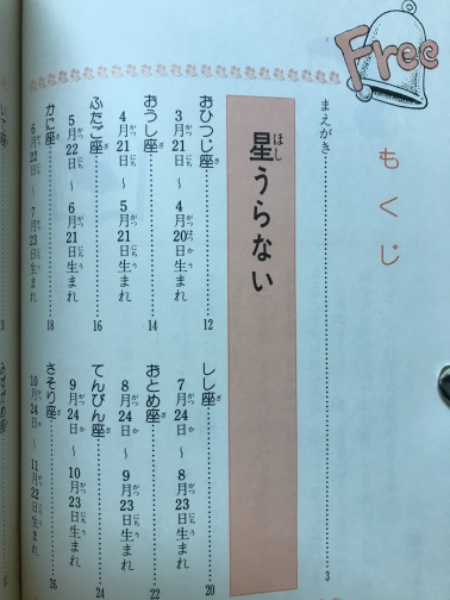 Free
もくじ
まえがき……3
星うらない
おひつじ座……12
3月21日～4月20日生まれ
おうし座……14
4月21日～5月21日生まれ
ふたご座……16
5月22日～6月21日生まれ
かに座……18
6月22日～7月23日生まれ
しし座……20
7月24日～8月23日生まれ
おとめ座……22
8月24日～9月23日生まれ
てんびん座……24
9月24日～10月23日生まれ
さそり座……26
10月24日～11月22日生まれ